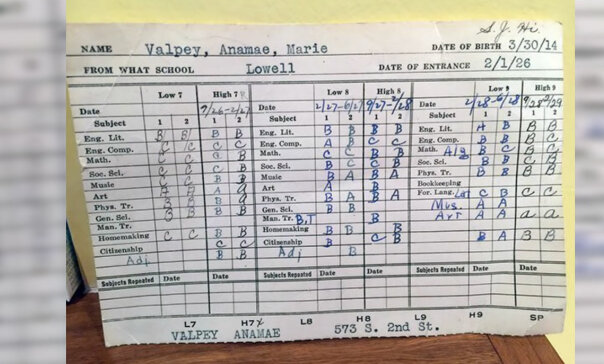 S. J. Hi.
NAME Valpey, Anamae, Marie DATE OF BIRTH 3/30/14
FROM WHAT SCHOOL Lowell DATE OF ENTRANCE 2/1/26
Low 7 High 7 Low 8 High 8 Low 9 High 9
Date 9/26-2/27 Date 2/27-6/27 9/27-2/28 Date 2/28-6/28 9/28 2/29
Subject 1 2 1 2 Subject 1 2 1 2 Subject 1 2 1 2
Eng. Lit. B B B B Eng. Lit. B B B B Eng. Lit. A B B B
Eng. Comp. C C C C Eng. Comp. A B C C Eng. Comp. B B B B
Math. C C C B Math. C C B B Math. Alg B C B C
Soc. Sci. C C C C Soc. Sci. B C C B Soc. Sci. B B C B
Music C C B B Music B A B A Phys. Tr. B B B B
Art A a Art A B Bookkeeping
Phys. Tr. B B B a Phys. Tr. B A B A For. Lang. Lat C B C C
Gen. Sci. B B B B Gen. Sci. B B Mus. A A
Man. Tr. Man. Tr. B.T B Art A A a a
Homemaking C C B B Homemaking B B B B A B B
Citizenship C C Citizenship B C B
Adj. B B Adj B
Subjects Repeated Date Date Subjects Repeated Date Date Subjects Repeated Date Date
L7 H7 L8 H8 L9 H9 SP
VALPEY ANAMAE 573 S. 2nd St.